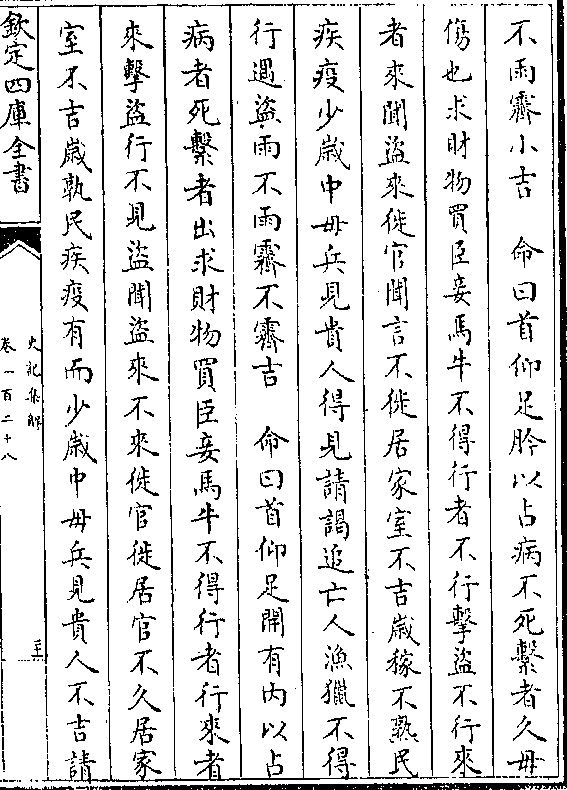 不雨霽小吉　命曰首仰足肣以占病不死繫者久毋
傷也求財物買臣妾馬牛不得行者不行擊盜不行來
者來聞盜來徙官聞言不徙居家室不吉歲稼不孰民
疾疫少歲中毋兵見貴人得見請謁追亡人漁獵不得
行遇盜雨不雨霽不霽吉　命曰首仰足開有内以占
病者死繫者出求財物買臣妾馬牛不得行者行來者
來擊盜行不見盜聞盜來不來徙官徙居官不久居家
室不吉歲孰民疾疫有而少歲中毋兵見貴人不吉請
欽定四庫全書
史記集解
卷一百二十八